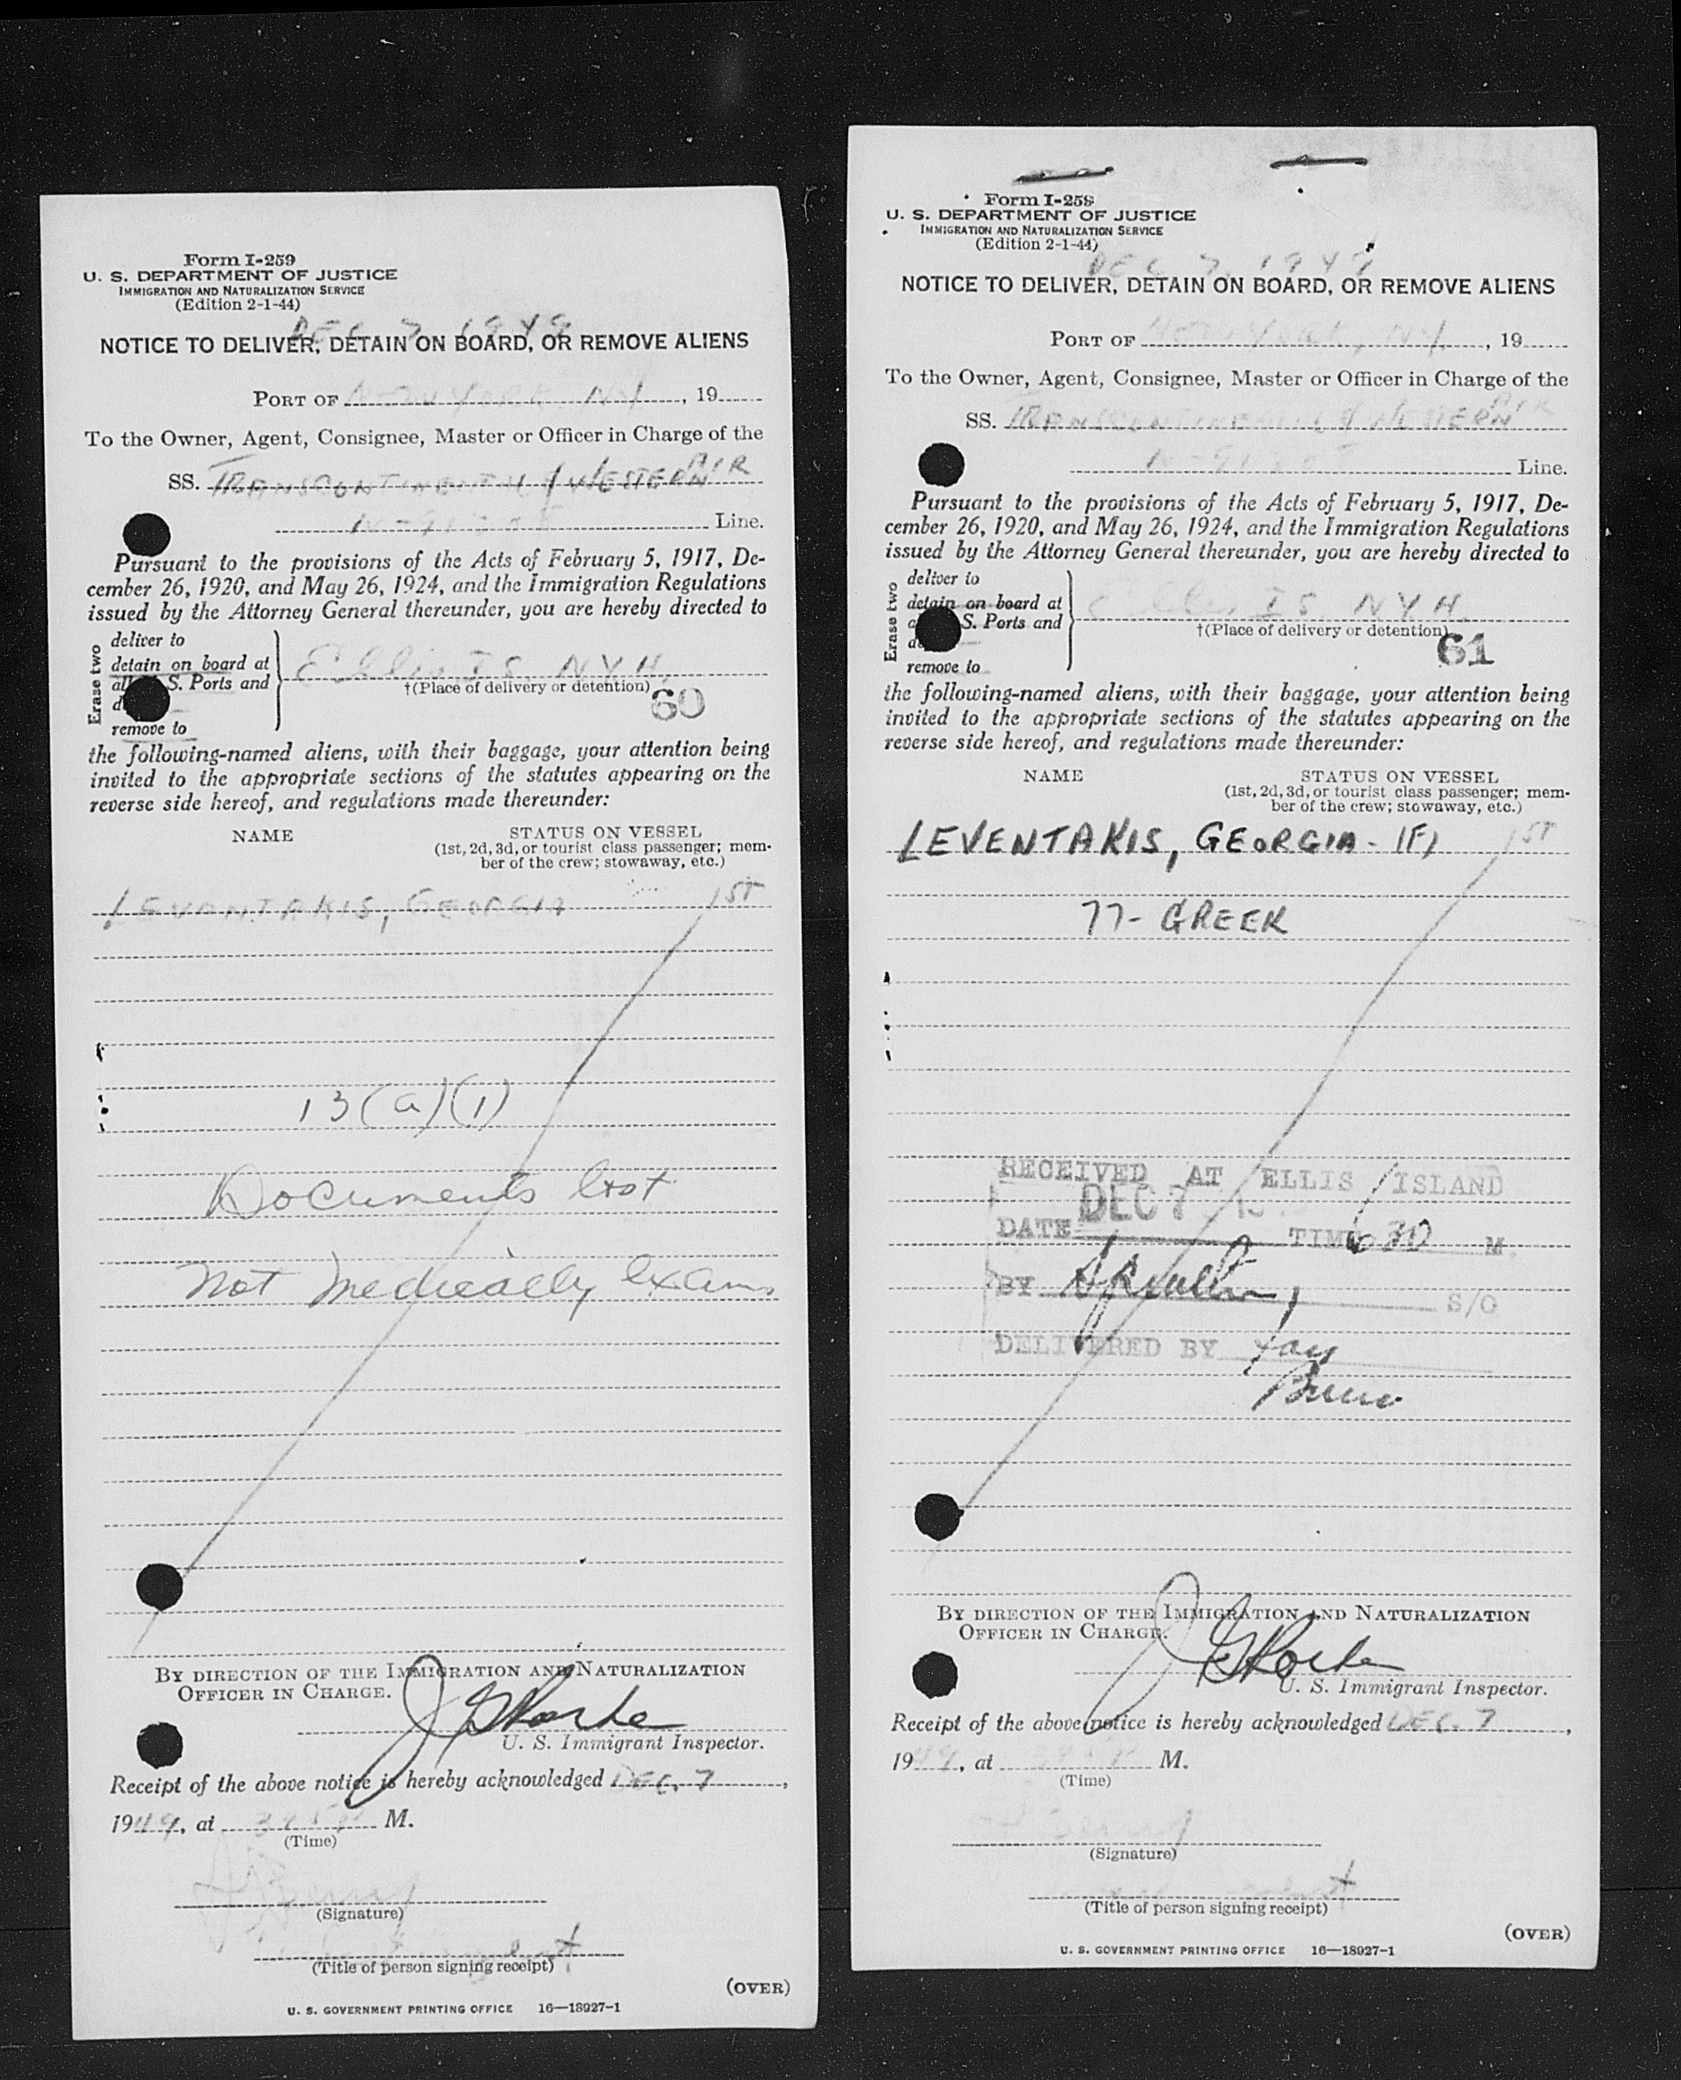 Form I-259
U. S. DEPARTMENT OF JUSTICE
IMMIGRATION AND NATURALIZATION SERVICE
(Edition 2-1-44)
DEC 7 1949
NOTICE TO DELIVER, DETAIN ON BOARD, OR REMOVE ALIENS
PORT OF NEW YORK NY, 19
To the Owner, Agent, Consignee, Master or Officer in Charge of the
SS. TRANSCONTINENTAL & WESTERN AIR
Line.
Pursuant to the provisions of the Acts of February 5, 1917, De-
cember 26, 1920, and May 26, 1924, and the Immigration Regulations
issued by the Attorney General thereunder, you are hereby directed to
Erase two
deliver to
detain on board at
all S. Ports and
remove to
Ellis Is. NYH.
†(Place of delivery or detention)
60
the following-named aliens, with their baggage, your attention being
invited to the appropriate sections of the statutes appearing on the
reverse side hereof, and regulations made thereunder:
NAME STATUS ON VESSEL
(1st, 2d, 3d, or tourist class passenger; mem-
ber of the crew; stowaway, etc.)
LEVANTAKIS, GEORGIA 1ST
13(a)(1)
Documents lost
Not Medically Exam
BY DIRECTION OF THE IMMIGRATION AND NATURALIZATION
OFFICER IN CHARGE.
U. S. Immigrant Inspector.
Receipt of the above notice is hereby acknowledged DEC. 7,
1949, at M.
(Time)
(Signature)
(Title of person signing receipt)
(OVER)
U. S. GOVERNMENT PRINTING OFFICE 16—18927-1
Form I-259
U. S. DEPARTMENT OF JUSTICE
IMMIGRATION AND NATURALIZATION SERVICE
(Edition 2-1-44)
DEC 7, 1949
NOTICE TO DELIVER, DETAIN ON BOARD, OR REMOVE ALIENS
PORT OF NEW YORK, NY., 19
To the Owner, Agent, Consignee, Master or Officer in Charge of the
SS. TRANSCONTINENTAL & WESTERN AIR
Line.
Pursuant to the provisions of the Acts of February 5, 1917, De-
cember 26, 1920, and May 26, 1924, and the Immigration Regulations
issued by the Attorney General thereunder, you are hereby directed to
Erase two
deliver to
detain on board at
S. Ports and
remove to
Ellis Is. NYH.
†(Place of delivery or detention)
61
the following-named aliens, with their baggage, your attention being
invited to the appropriate sections of the statutes appearing on the
reverse side hereof, and regulations made thereunder:
NAME STATUS ON VESSEL
(1st, 2d, 3d, or tourist class passenger; mem-
ber of the crew; stowaway, etc.)
LEVENTAKIS, GEORGIA - (F) 1ST
77 - GREEK
RECEIVED AT ELLIS ISLAND
DATE DEC 7 TIME 630 M.
BY S/O
DELIVERED BY
Bruno
BY DIRECTION OF THE IMMIGRATION AND NATURALIZATION
OFFICER IN CHARGE.
U. S. Immigrant Inspector.
Receipt of the above notice is hereby acknowledged DEC. 7,
1949, at M.
(Time)
(Signature)
(Title of person signing receipt)
(OVER)
U. S. GOVERNMENT PRINTING OFFICE 16—18927-1